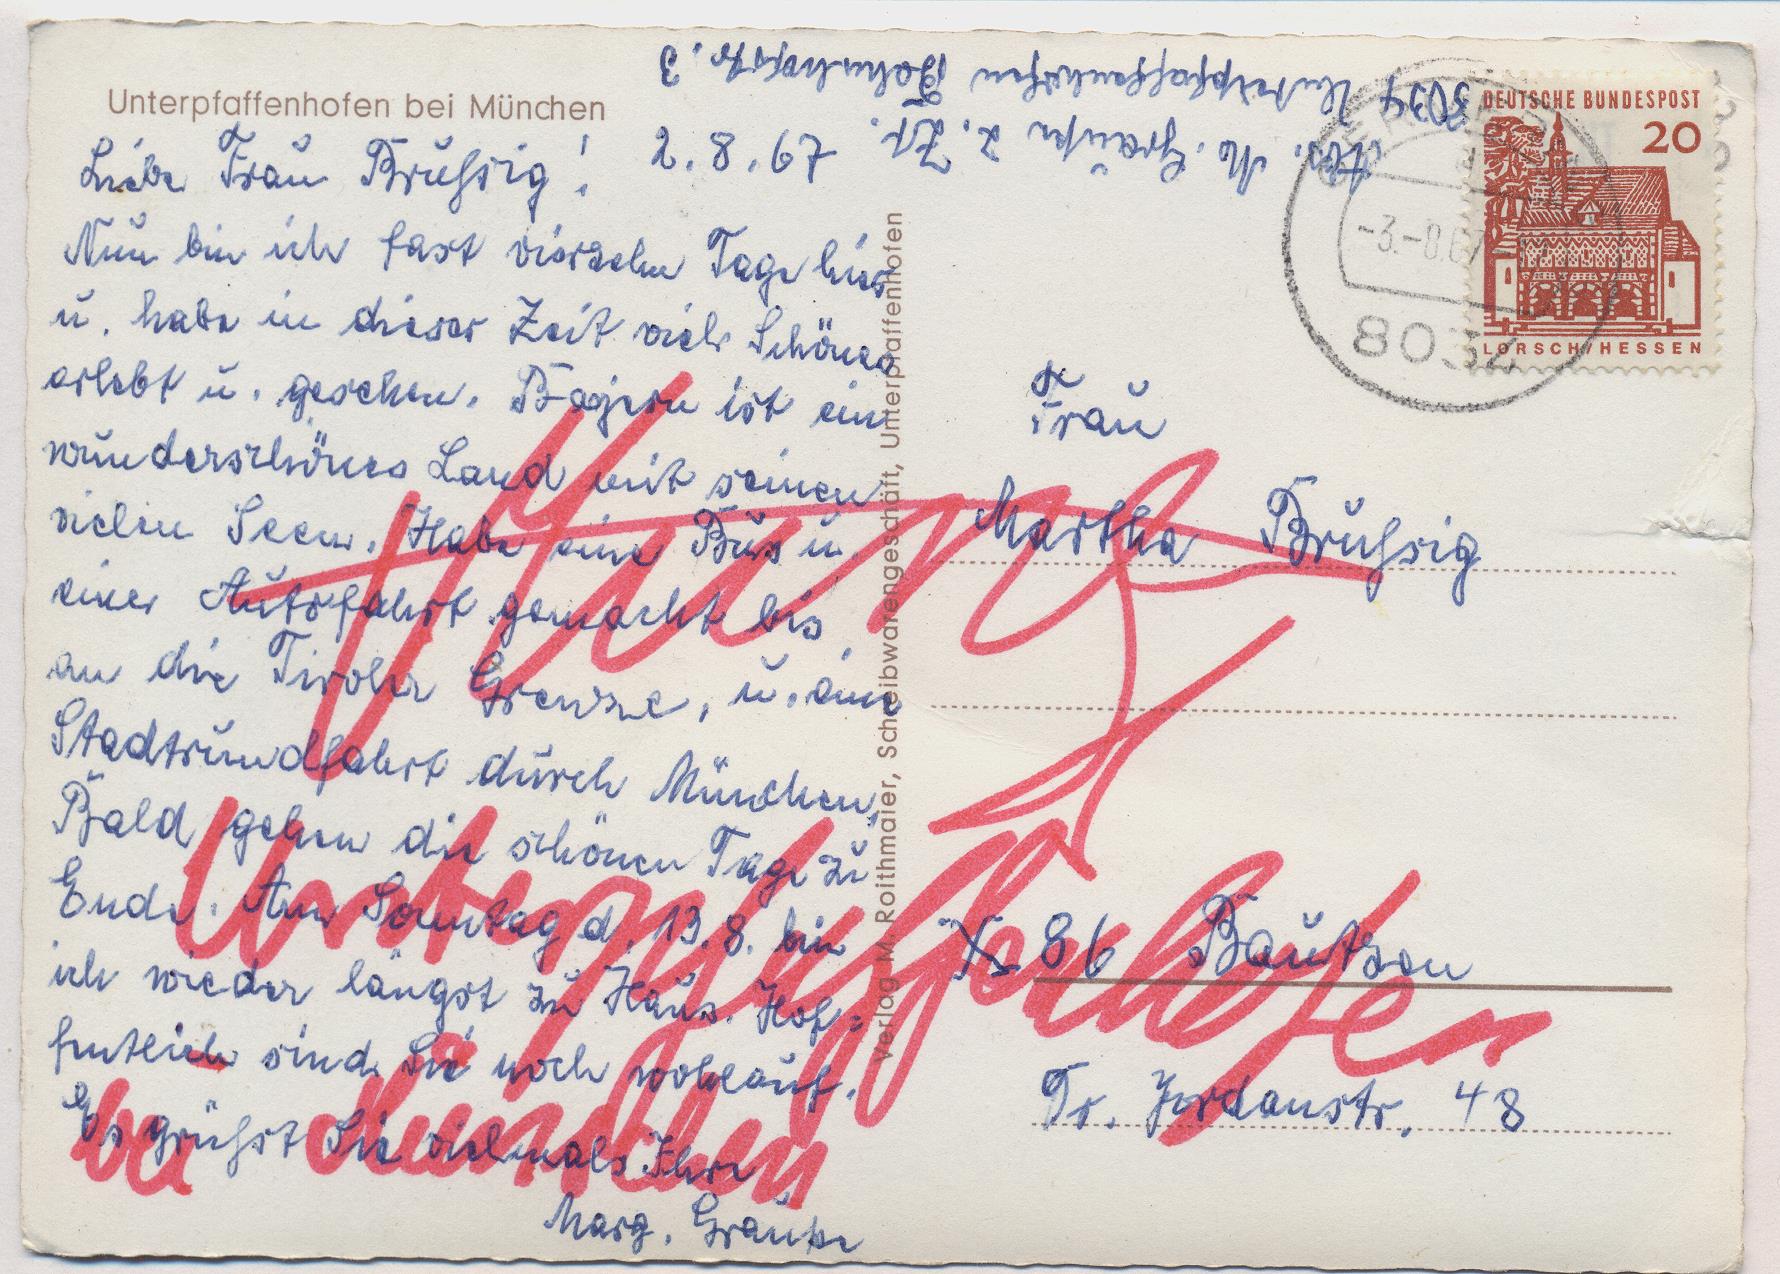 Unterpfaffenhofen bei München
Abs. M. Gräupe z. Zt.
8034 Unterpfaffenhofen Bahnhofstr. 3
2.8.67
Liebe Frau Bruhsig!
Nun bin ich fast vierzehn Tage hier
u. habe in dieser Zeit viel Schönes
erlebt u. gesehen. Bayern ist ein
wunderschönes Land mit seinen
vielen Seen. Habe eine Bus u.
einer Autofahrt gemacht bis
an die Tiroler Grenze, u. eine
Stadtrundfahrt durch München,
Bald gehen die schönen Tage zu
Ende. Am Sonntag d. 13.8. bin
ich wieder längst zu Haus. Hof=
fentlich sind Sie noch wohlauf.
Es grüßt Sie vielmals Ihre
Marg. Gräupe
Verlag M. Roithmaier, Schreibwarengeschäft, Unterpfaffenhofen
DEUTSCHE BUNDESPOST
20
LORSCH/HESSEN
-3.-8.67
8034
Frau
Martha Bruhsig
X 86 Bautzen
Tr. Jordanstr. 48
Unterpfaffenhofen
bei München